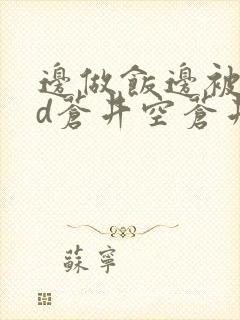 邊做飯邊被
d蒼井空蒼井
蘇寧